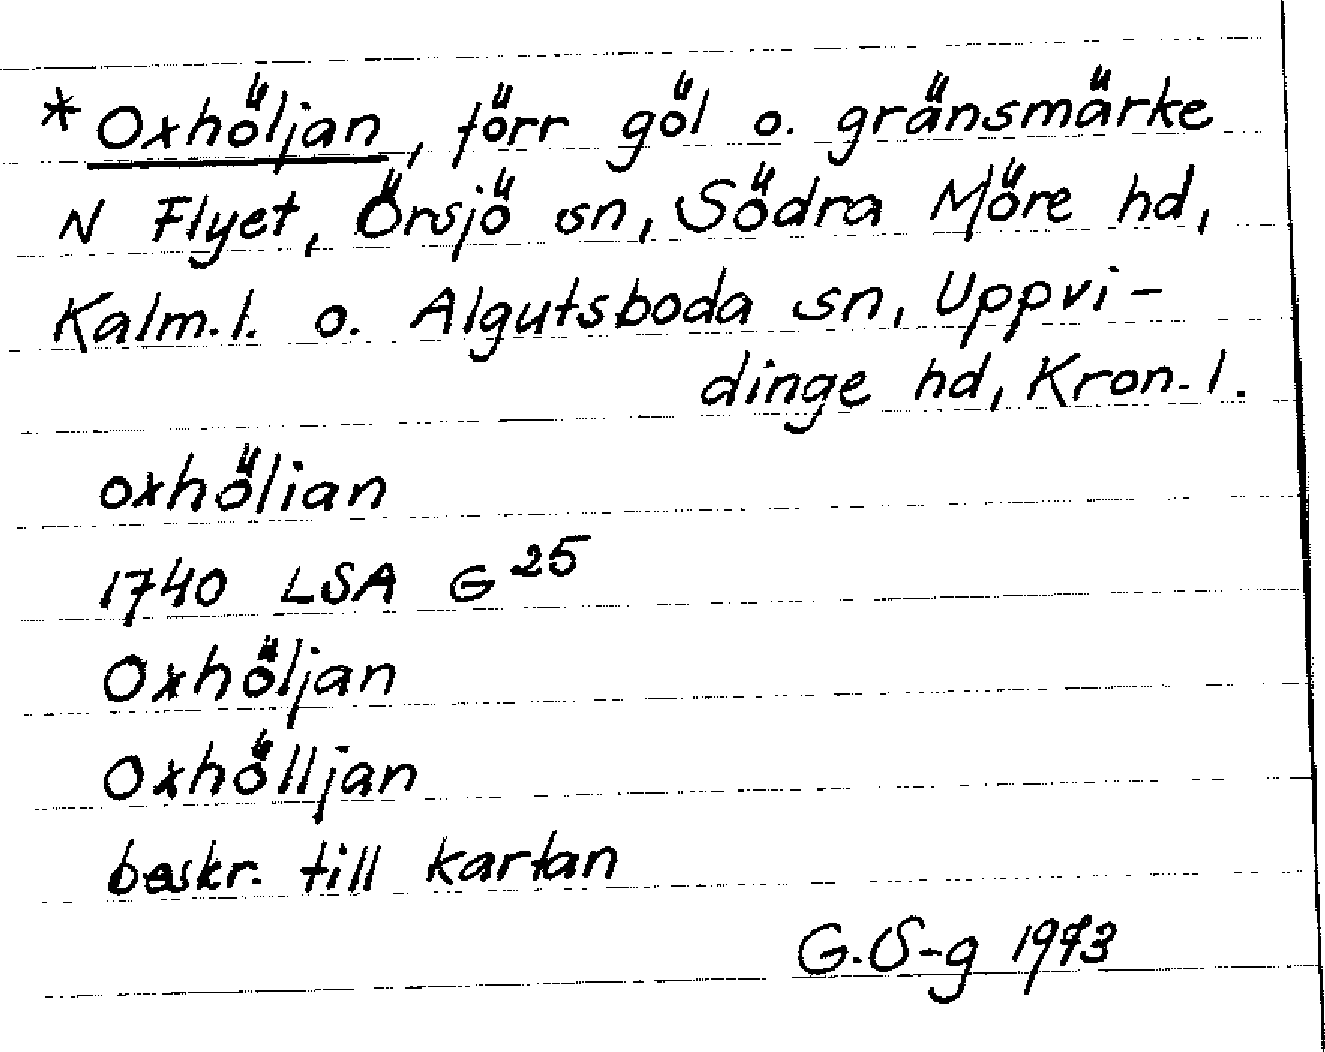 * Oxhöljan, förr göl o. gränsmärke
N Flyet, Örsjö sn, Södra Möre hd,
Kalm. l. o. Algutsboda sn, Uppvi-
dinge hd, Kron. l.
oxhölian
1740 LSA G 25
Oxhöljan
Oxhölljan
beskr. till kartan
G. S-g 1973